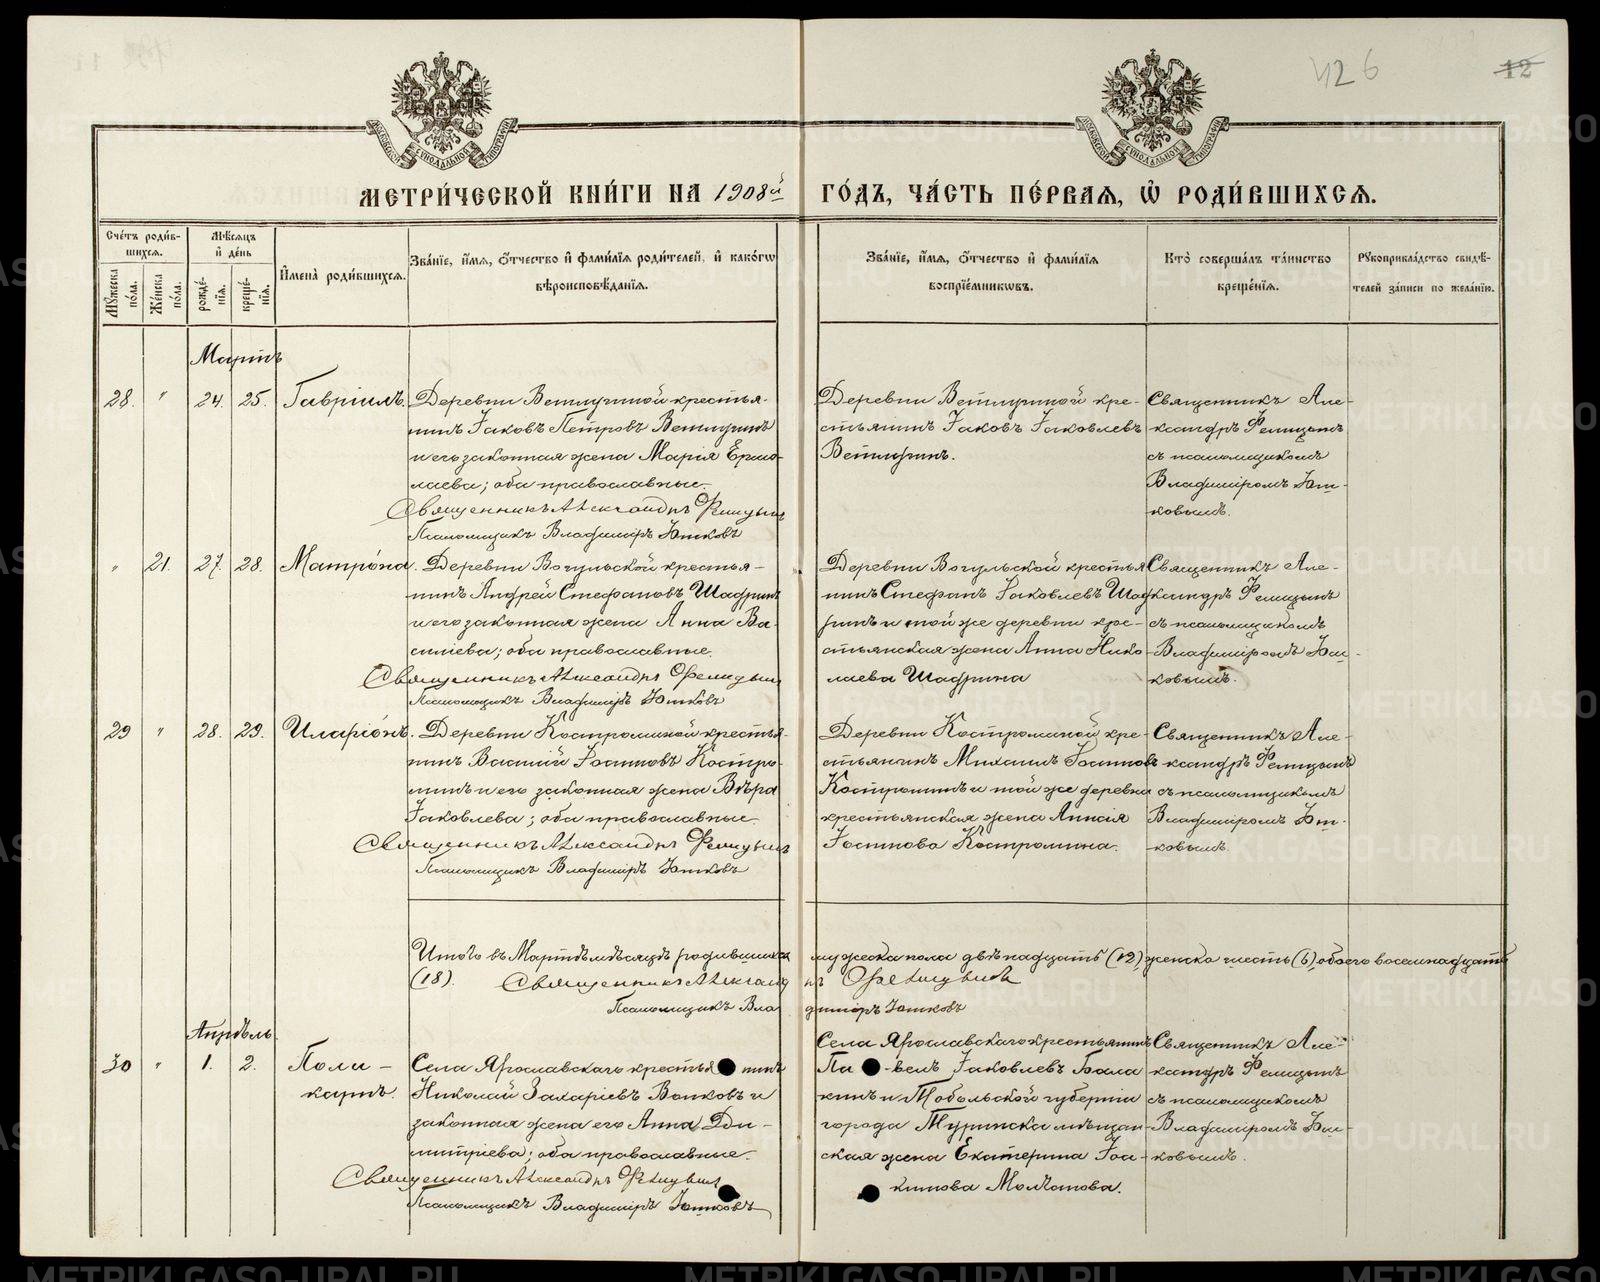 426
12
МОСКОВСКОЙ СѴНОДАЛЬНОЙ ТИПОГРАФІИ
МОСКОВСКОЙ СѴНОДАЛЬНОЙ ТИПОГРАФІИ
МЕТРИ́ЧЕСКОЙ КНИ́ГИ НА 1908й ГО́ДЪ, ЧА́СТЬ ПЕ́РВАЯ, Ѡ҆ РОДИ́ВШИХСѦ.
Сче́тъ роди́в-
шихся.
Мѣ́сяцъ
и҆ де́нь
Мꙋ́жеска
по́ла.
Же́нска
по́ла.
рожде́-
нїя.
креще́-
нїя.
И҆мена̀ роди́вшихся.
Зва́нїе, и҆́мя, ѻ҆́тчество и҆ фами́лїя роди́телей, и҆ како́гѡ
вѣроисповѣ́данїя.
Зва́нїе, и҆́мя, ѻ҆́тчество и҆ фами́лїя
воспрїе́мникѡвъ.
Кто̀ соверша́лъ та́инство
креще́нїя.
Рꙋкоприкла́дство свидѣ́-
телей за́писи по жела́нїю.
Мартъ
28. " 24. 25. Гавріилъ.
Деревни Ветлугиной крестья-
нинъ Іаковъ Петровъ Ветлугинъ
и его законная жена Марія Ермо-
лаева; оба православные.
Священникъ Александръ Фелицынъ
Псаломщикъ Владиміръ Ютковъ
Деревни Ветлугиной кре-
стьянинъ Іаковъ Іаковлевъ
Ветлугинъ.
Священникъ Але-
ксандръ Фелицынъ
съ псаломщикомъ
Владиміромъ Ют-
ковымъ.
" 21. 27. 28. Матро́на.
Деревни Вогульской крестья-
нинъ Андрей Стефановъ Шадринъ
и его законная жена Анна Ва-
силіева; оба православные.
Священникъ Александръ Фелицынъ
Псаломщикъ Владиміръ Ютковъ
Деревни Вогульской крестья
нинъ Стефанъ Іаковлевъ Шад
ринъ и той же деревни кре-
стьянская жена Анна Нико-
лаева Шадрина
Священникъ Але-
ксандръ Фелицынъ
съ псаломщикомъ
Владиміромъ Ют-
ковымъ.
29 " 28. 29. Иларіо́нъ.
Деревни Костроминой крестья-
нинъ Василій Іоанновъ Костро-
минъ и его законная жена Вѣра
Іаковлева; оба православные.
Священникъ Александръ Фелицынъ
Псаломщикъ Владиміръ Ютковъ
Деревни Костроминой кре-
стьянинъ Михаилъ Іоанновъ
Костроминъ и той же деревни
крестьянская жена Аннсія
Іоаннова Костромина.
Священникъ Але-
ксандръ Фелицынъ
съ псаломщикомъ
Владиміромъ Ют-
ковымъ.
Итого въ Мартѣ мѣсяцѣ родившихся мужеска пола двѣнадцать (12), женска шесть (6), обоего восемнадцать
(18). Священникъ Александръ Фелицынъ
Псаломщикъ Владиміръ Ютковъ
Апрѣль
30 " 1. 2. Поли-
карпъ.
Села Ярославскаго крестья нинъ
Николай Захаріевъ Волковъ и
законная жена его Анна Ди-
митріева; оба православные.
Священникъ Александръ Фелицынъ
Псаломщикъ Владиміръ Ютковъ
Села Ярославскаго крестьянинъ
Па -велъ Іаковлевъ Бала
кинъ и Тобольской губерніи
города Туринска мѣщан-
ская жена Екатерина Іоа-
кимова Молотова.
Священникъ Але-
ксандръ Фелицынъ
съ псаломщикомъ
Владиміромъ Ют-
ковымъ.
METRIKI.GASO-URAL.RU